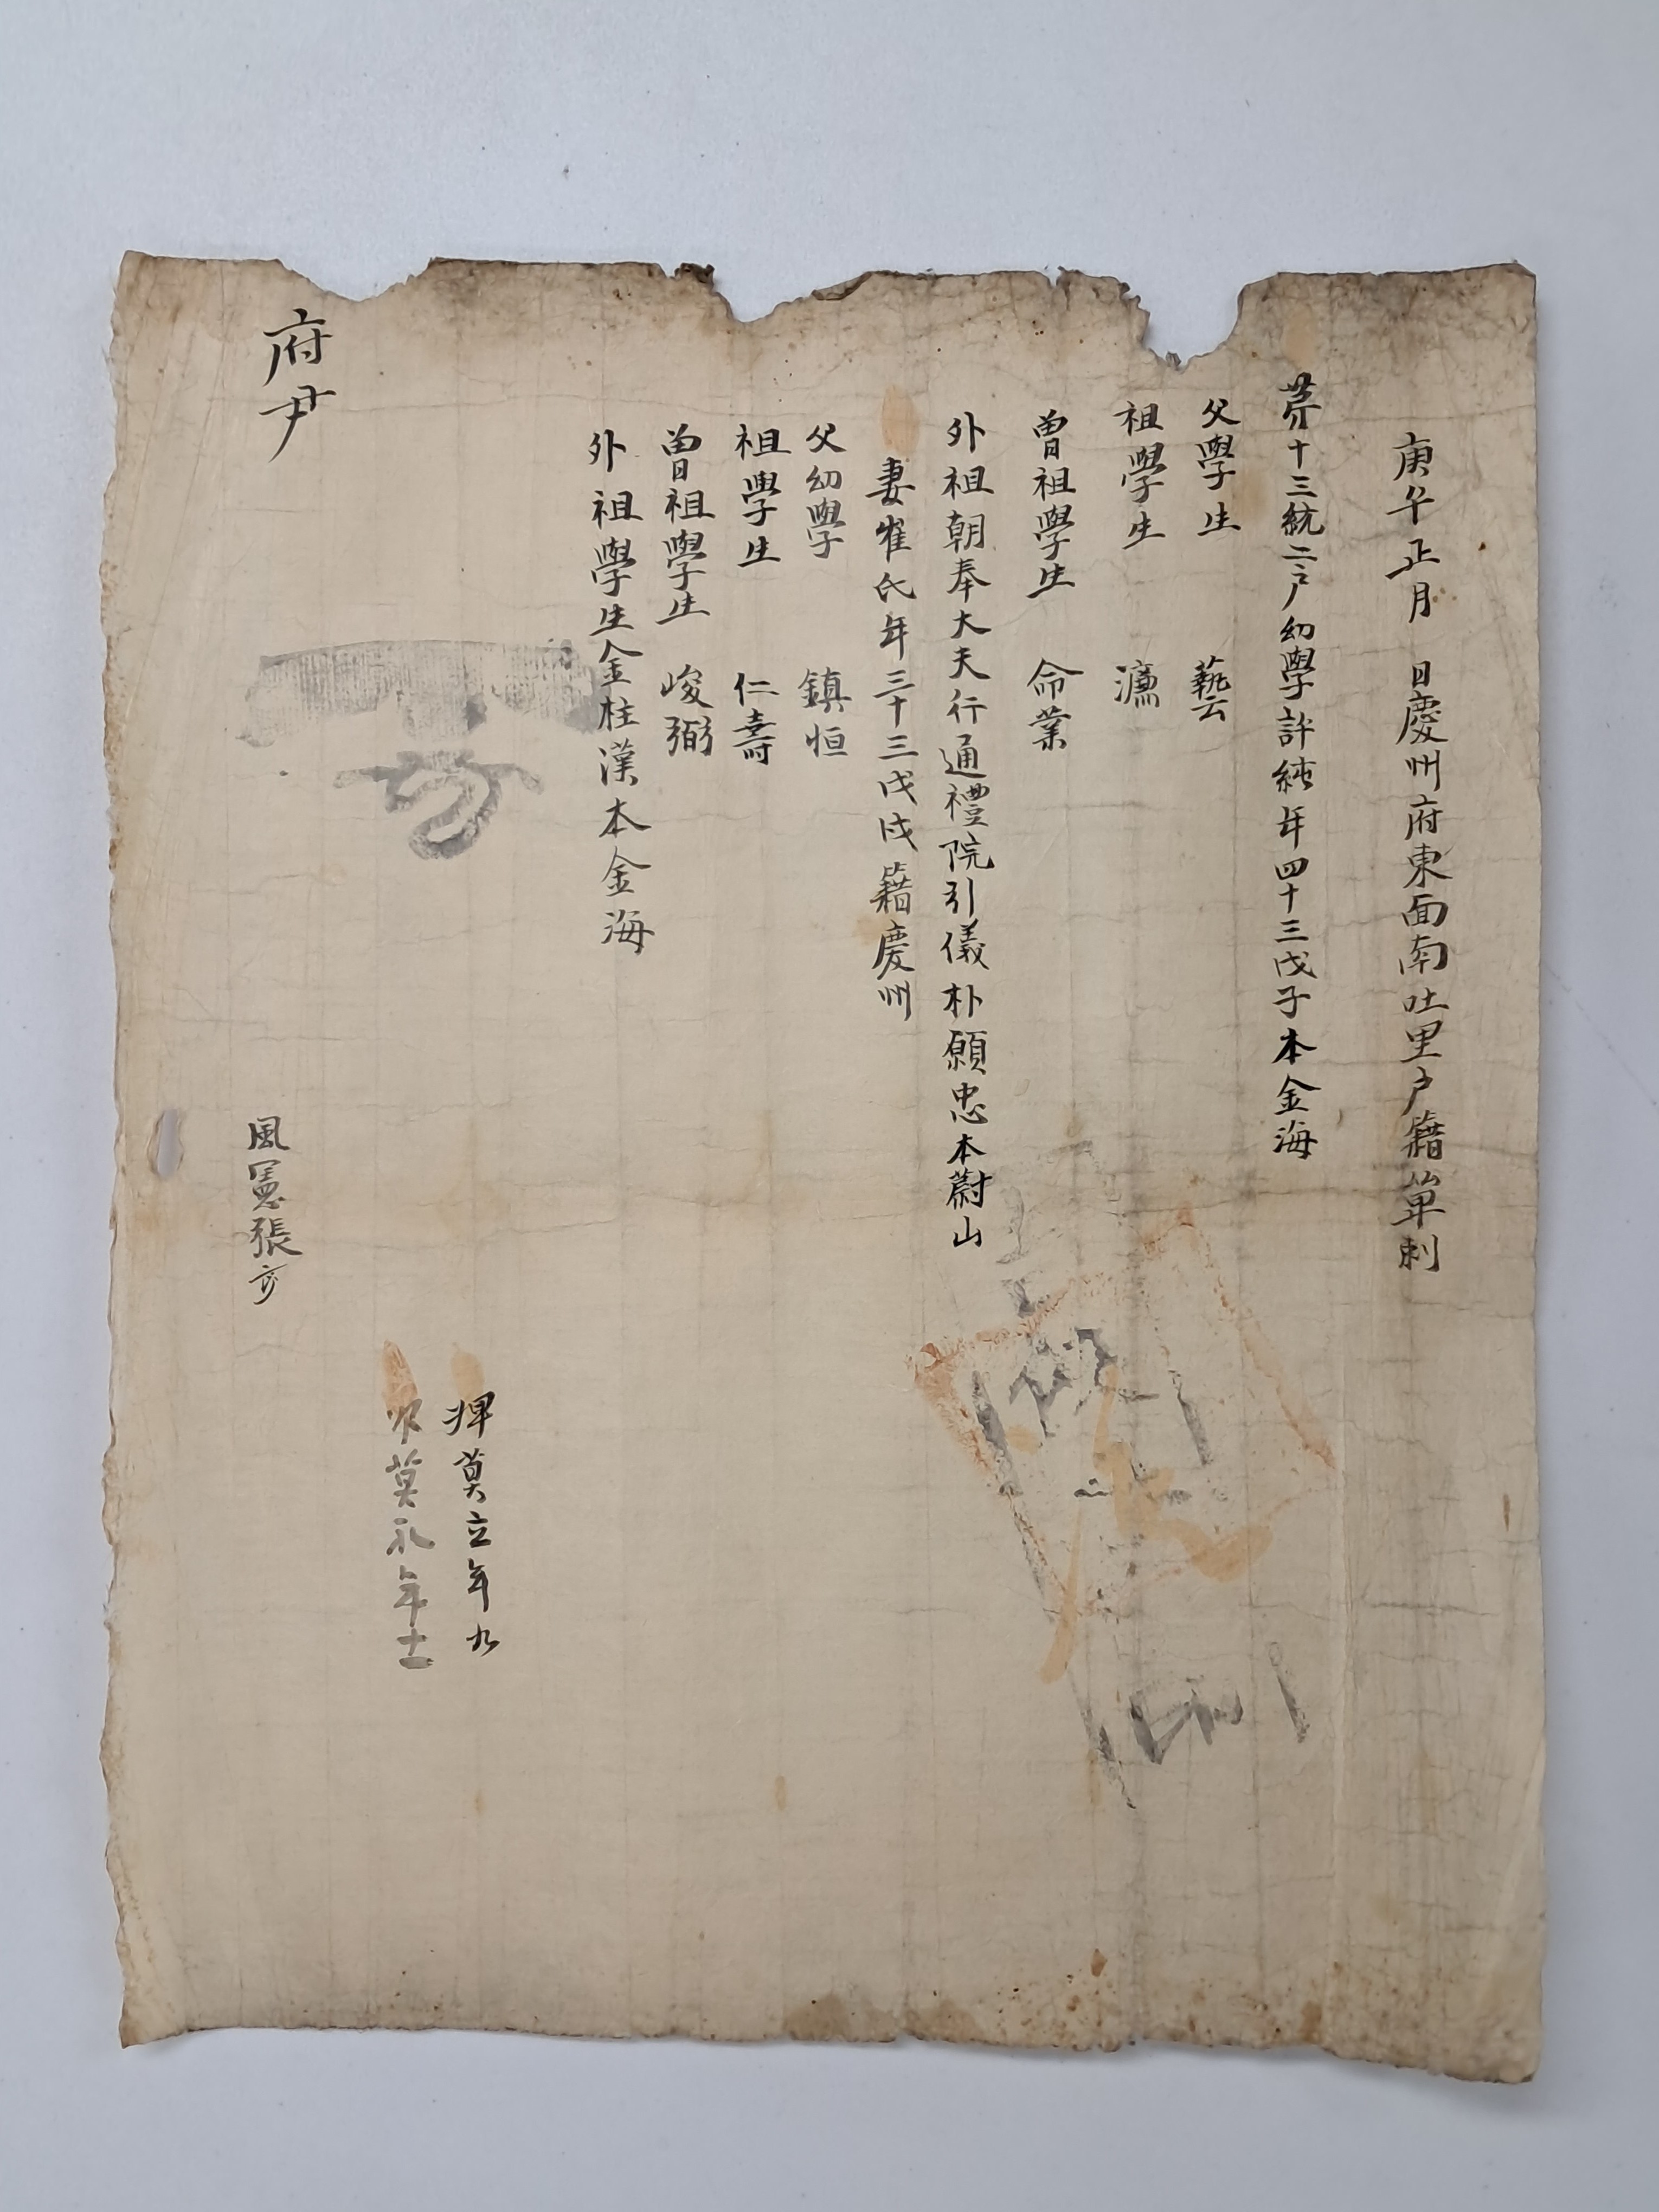 庚午正月 日慶州府東面南吐里户籍單刺
苐十三統二户幼學許純年四十三戊子本金海
父學生 藝
祖學生 濂
曾祖學生 命業
外祖朝奉大夫行通禮院引儀朴願忠本蔚山
妻崔氏年三十三戊戌籍慶州
父幼學 鎮恒
祖學生 仁壽
曾祖學生 峻弼
外祖學生金柱漢本金海
婢莫立年九
莫礼年十二
府尹
風憲張